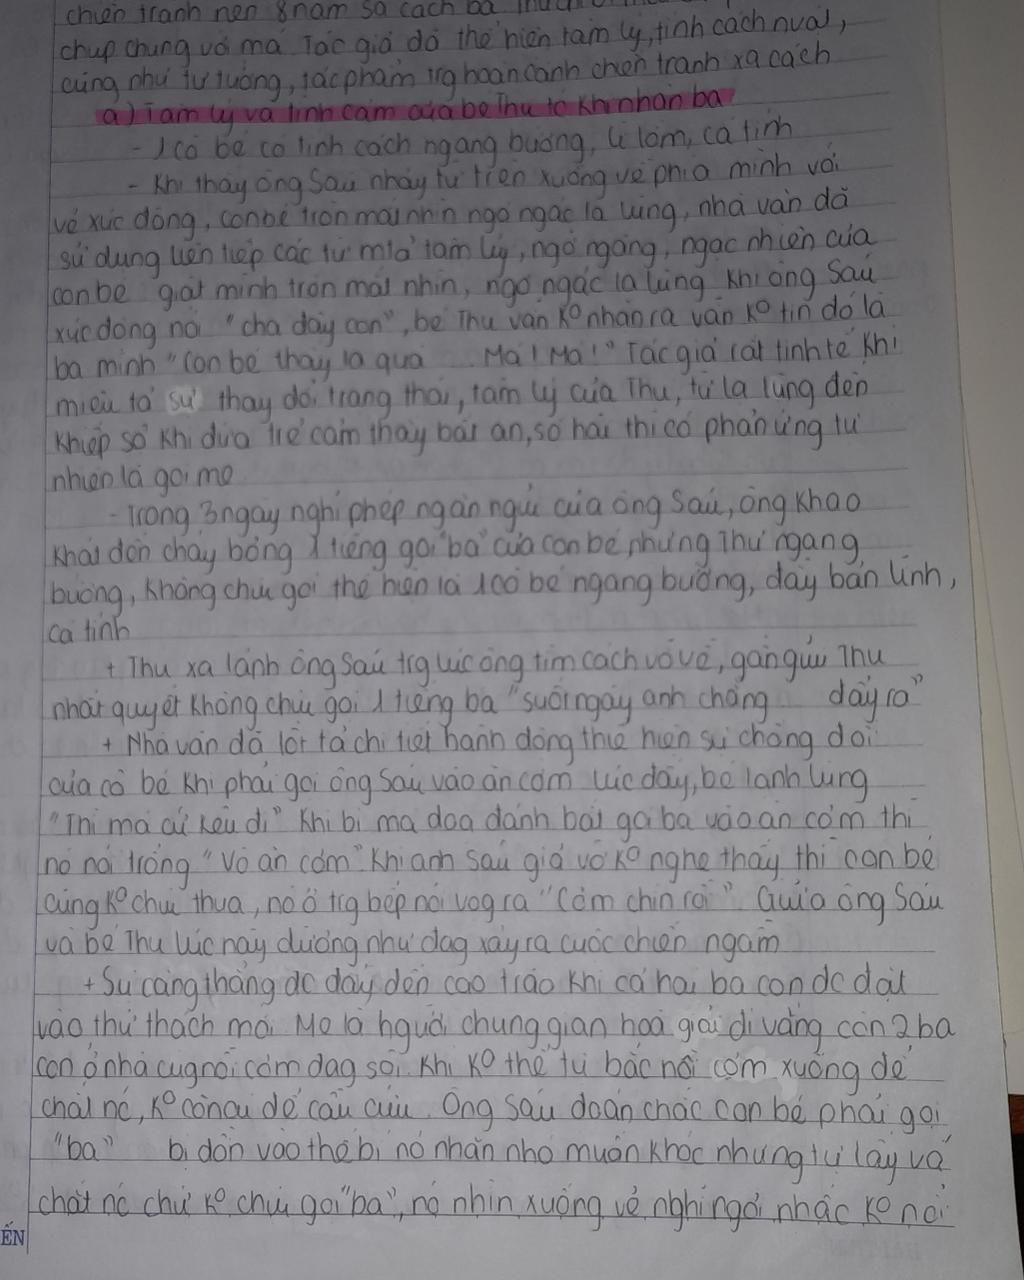 chiến tranh nên 8 năm xa cách ba Thu
chụp chung với má Tác giả đã thể hiện tâm lý, tính cách nvật,
cũng như tư tưởng, tác phẩm trg hoàn cảnh chiến tranh xa cách
a) Tâm lý và tình cảm của bé Thu từ khi nhận ba
- 1 cô bé có tính cách ngang bướng, lì lợm, cá tính
- Khi thấy ông Sáu nhảy từ trên xuồng về phía mình với
vẻ xúc động, con bé tròn mắt nhìn ngơ ngác lạ lùng, nhà văn đã
sử dụng liên tiếp các từ mtả tâm lý, ngỡ ngàng, ngạc nhiên của
con bé giật mình tròn mắt nhìn, ngơ ngác lạ lùng khi ông Sáu
xúc động nói "cha đây con", bé Thu vẫn ko nhận ra vẫn ko tin đó là
ba mình "Con bé thấy lạ quá Má! Má!" Tác giả rất tinh tế khi
miêu tả sự thay đổi trạng thái, tâm lý của Thu, từ lạ lùng đến
khiếp sợ khi đứa trẻ cảm thấy bất an, sợ hãi thì có phản ứng tự
nhiên là gọi mẹ
- Trong 3 ngày nghỉ phép ngắn ngủi của ông Sáu, ông khao
khát đến cháy bỏng 1 tiếng gọi "ba" của con bé nhưng Thu ngang
bướng, không chịu gọi thể hiện là 1 cô bé ngang bướng, đầy bản lĩnh,
cá tính
+ Thu xa lánh ông Sáu trg lúc ông tìm cách vỗ về, gần gũi Thu
nhất quyết không chịu gọi 1 tiếng ba "suốt ngày anh chẳng đẩy ra"
+ Nhà văn đã lột tả chi tiết hành động thể hiện sự chống đối
của cô bé khi phải gọi ông Sáu vào ăn cơm lúc đầy, bé lạnh lùng
"Thì má cứ kêu đi" Khi bị má doạ đánh bắt gọi ba vào ăn cơm thì
nó nói trống "Vô ăn cơm" Khi anh Sáu giả vờ ko nghe thấy thì con bé
cũng ko chịu thua, nó ở trg bếp nói vọg ra "Cơm chín rồi" Giữa ông Sáu
và bé Thu lúc này dường như đag xảy ra cuộc chiến ngầm
+ Sự căng thẳng đc đẩy đến cao trào khi cả hai ba con đc đặt
vào thử thách mới. Mẹ là người chung gian hoà giải đi vắng còn 2 ba
con ở nhà cùg nồi cơm đag sôi. Khi ko thể tự bắc nồi cơm xuống để
chắt nc, ko còn ai để cầu cứu. Ông Sáu đoán chắc con bé phải gọi
"ba" bị dồn vào thế bí nó nhăn nhó muốn khóc nhưng tự lấy vá
chắt nc chứ ko chịu gọi "ba", nó nhìn xuống vẻ nghĩ ngợi nhấc ko nổi
ẾN